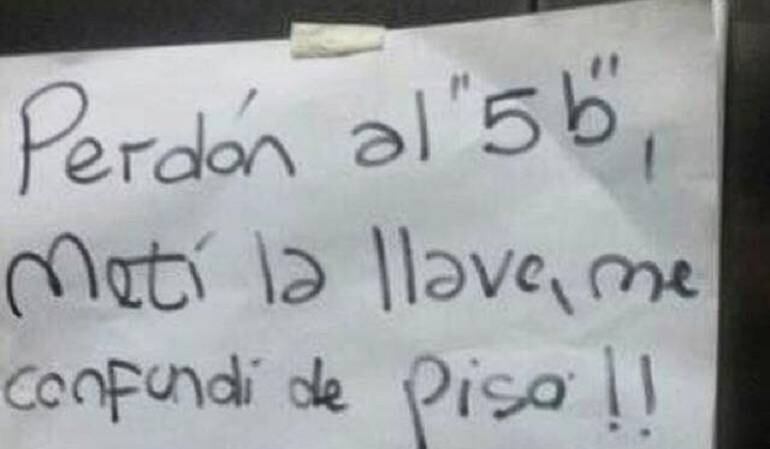 Perdón al "5b",
Metí la llave, me
confundi de piso!!